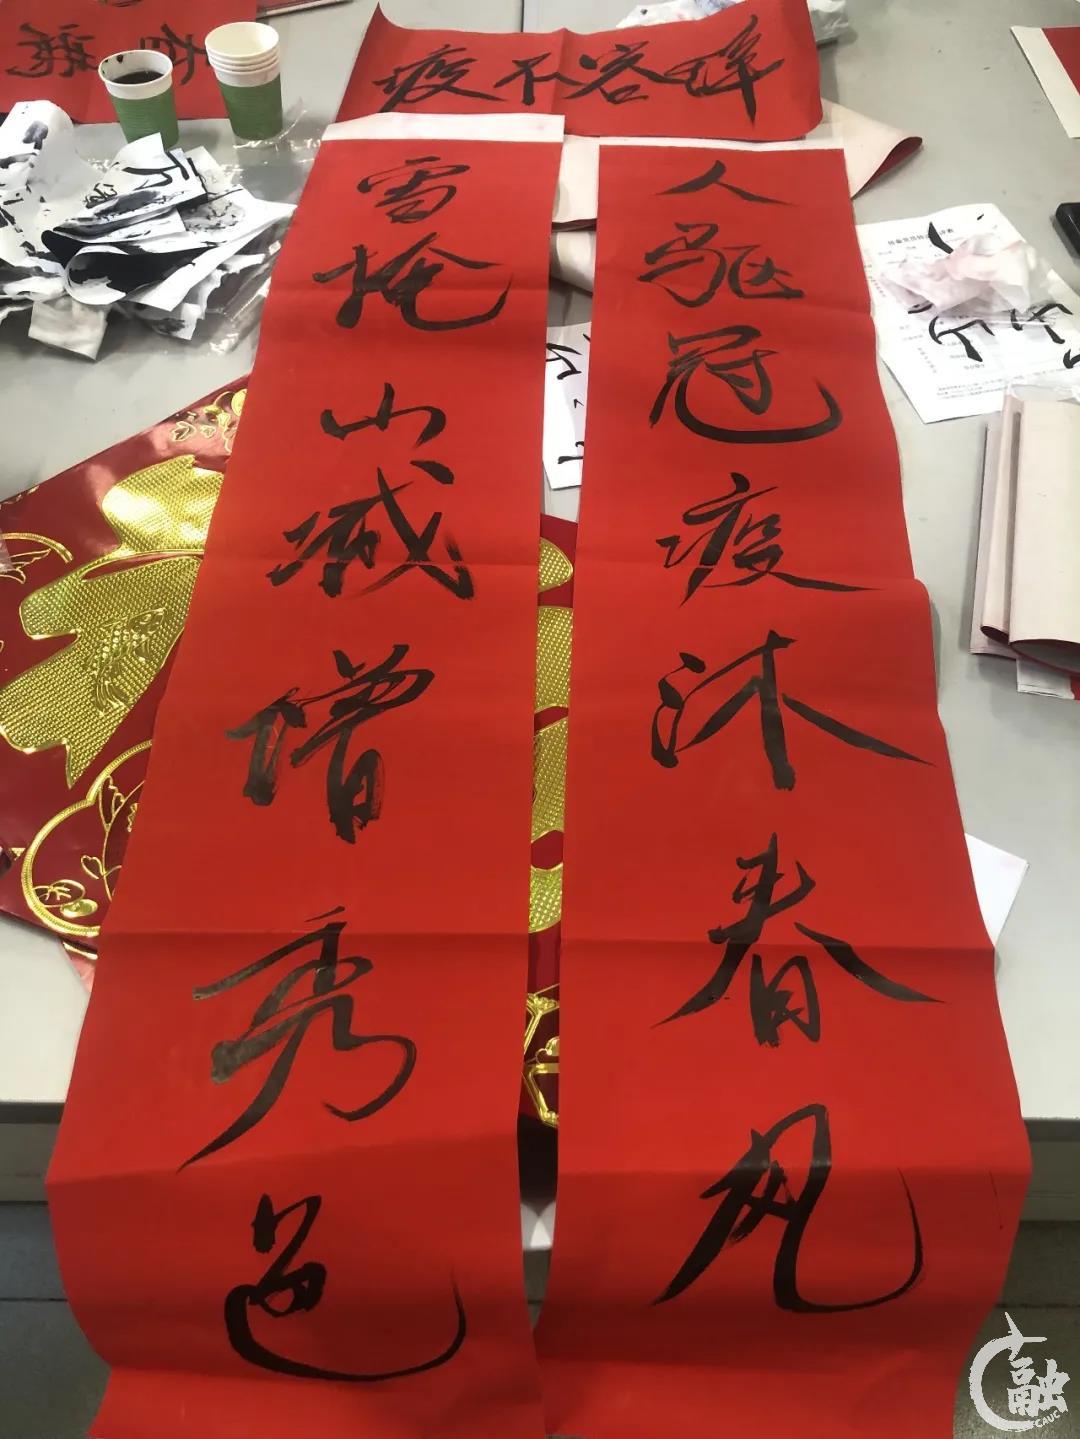 疫不容辞
人驱冠疫沐春风
雪掩山城增秀色
融
CAUC